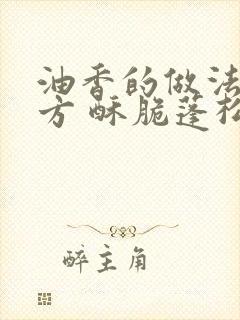 油香的做法
方 酥脆蓬松
醉主角